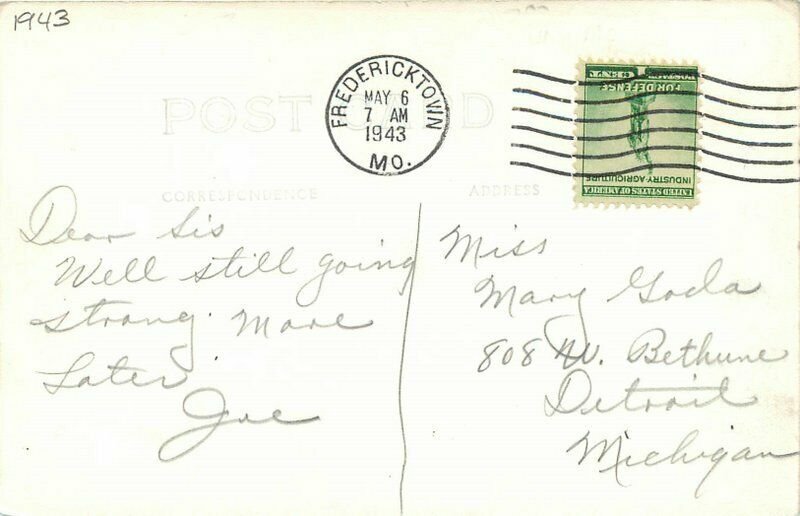 1943
POST CARD
FREDERICKTOWN
MAY 6
7 AM
1943
MO.
UNITED STATES OF AMERICA
INDUSTRY-AGRICULTURE
FOR DEFENSE
POSTAGE
CORRESPONDENCE
ADDRESS
Dear Sis
Well still going
strong. More
Later.
Joe
Miss
Mary Goda
808 W. Bethune
Detroit
Michigan